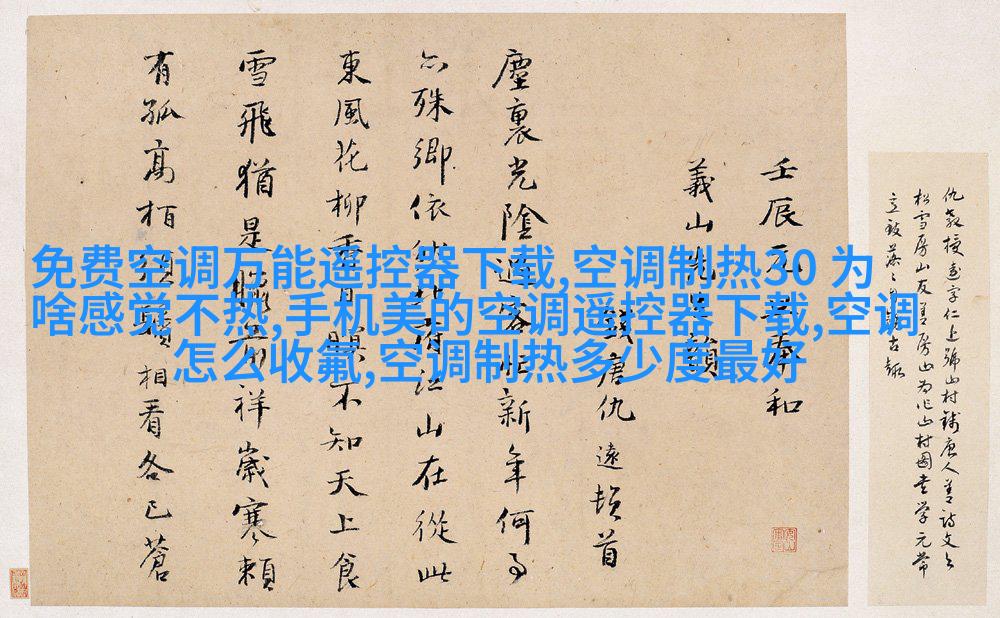 免费空调万能遥控器下载,空调制热30 为
啥感觉不热,手机美的空调遥控器下载,空调
怎么收氟,空调制热多少度最好
壬辰元奉和
義山先生韻
錢唐仇遠頓首
塵裏光陰過客忙新年何事
殊鄉依江山在從此
東風花柳不知天上食
雪飛猶是祥歲寒賴
有孤高栢相看各已蒼
仇教授遠字仁上號山村錢唐人善詩文與
松雪房山友善房山為作山村圖書學元常